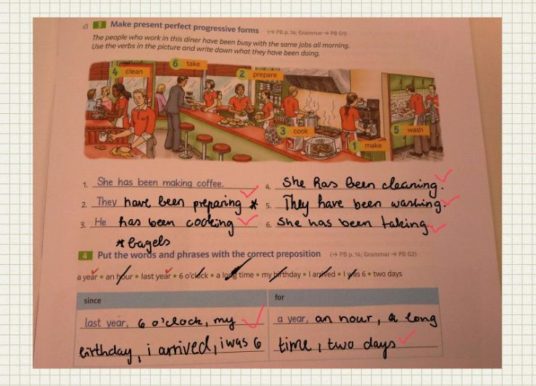 3 Make present perfect progressive forms (→ PB p. 16; Grammar → PB G1)
The people who work in this diner have been busy with the same jobs all morning.
Use the verbs in the picture and write down what they have been doing.
6 take
4 clean
2 prepare
3 cook
1 make
5 wash
1. She has been making coffee.
4. She has been cleaning.
2. They have been preparing *
5. They have been washing.
3. He has been cooking
6. She has been taking
* bagels
4 Put the words and phrases with the correct preposition (→ PB p. 16; Grammar → PB G2)
a year • an hour • last year • 6 o'clock • a long time • my birthday • I arrived • I was 6 • two days
since for
last year, 6 o'clock, my
a year, an hour, a long
birthday, i arrived, i was 6
time, two days